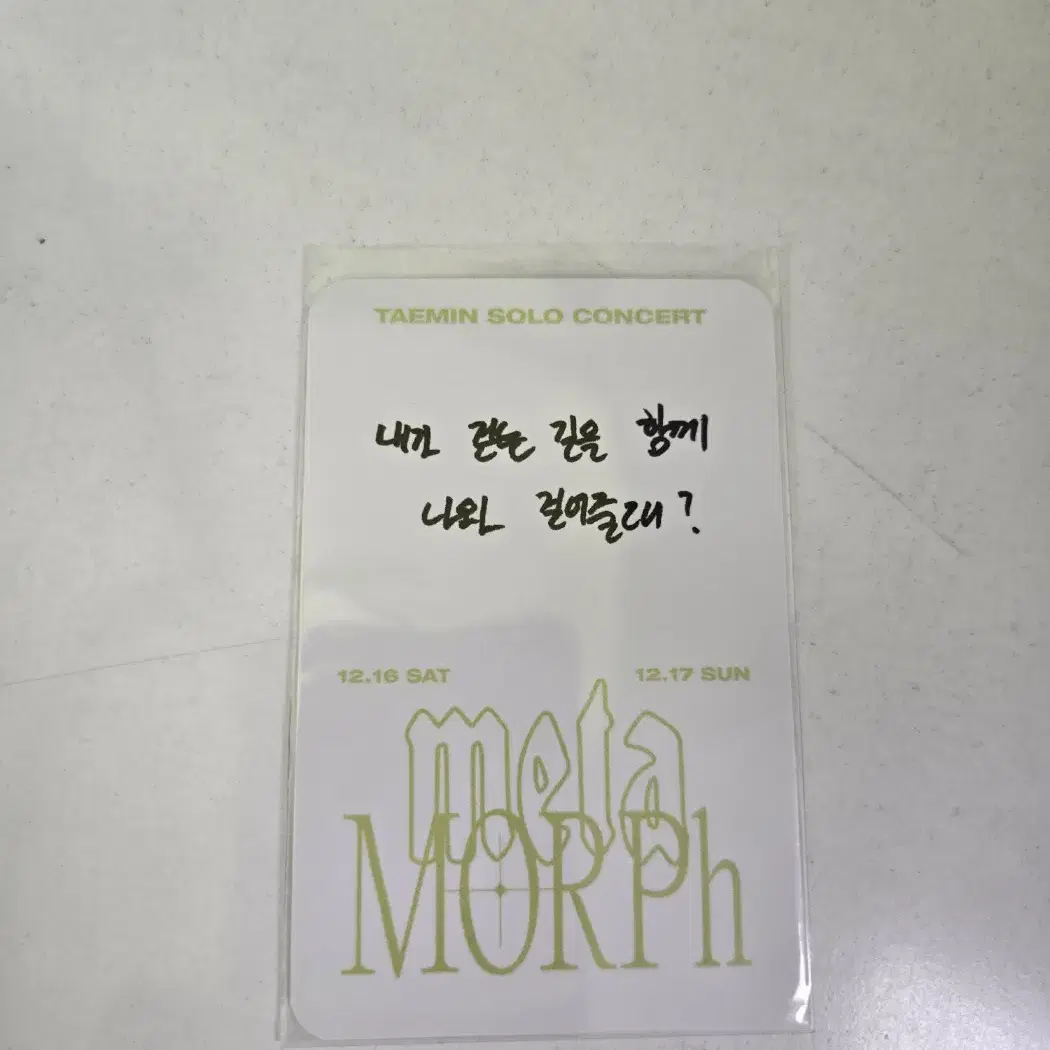 TAEMIN SOLO CONCERT
내가 걷는 길을 함께
나와 걸어줄래?
12.16 SAT 12.17 SUN
meta
MORPh